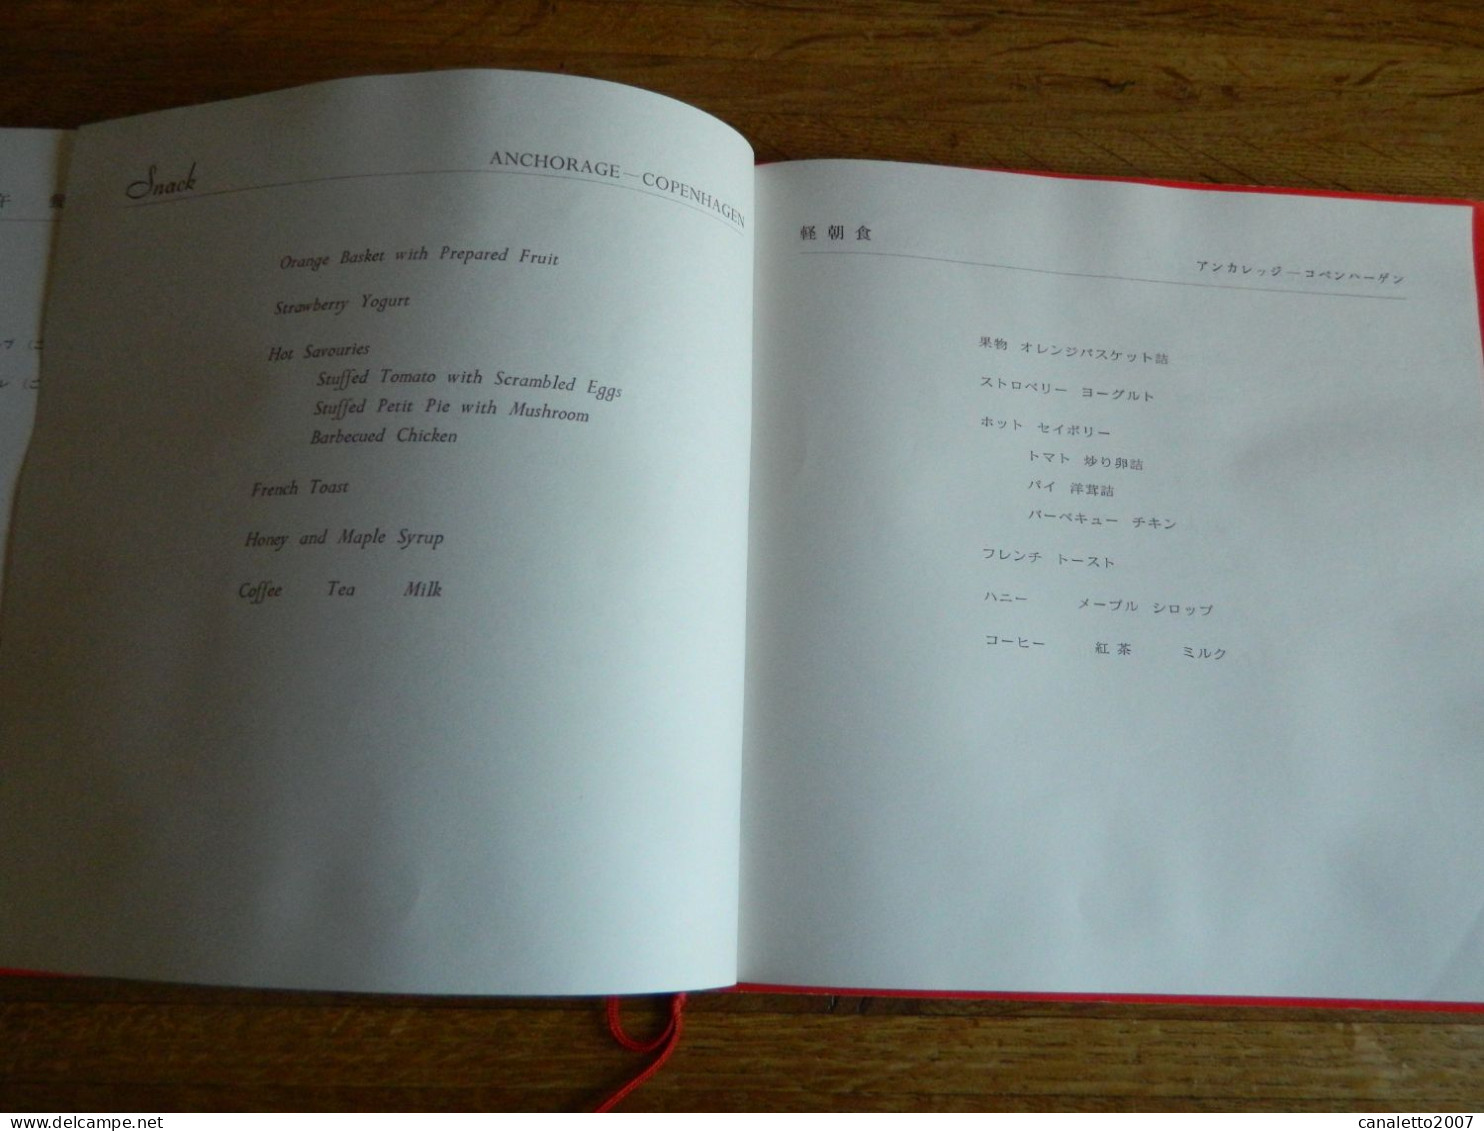 Snack
ANCHORAGE—COPENHAGEN
Orange Basket with Prepared Fruit
Strawberry Yogurt
Hot Savouries
Stuffed Tomato with Scrambled Eggs
Stuffed Petit Pie with Mushroom
Barbecued Chicken
French Toast
Honey and Maple Syrup
Coffee Tea Milk
軽朝食
アンカレッジ—コペンハーゲン
果物 オレンジバスケット詰
ストロベリー ヨーグルト
ホット セイボリー
トマト 炒り卵詰
パイ 洋茸詰
バーベキュー チキン
フレンチ トースト
ハニー メープル シロップ
コーヒー 紅茶 ミルク
www.delcampe.net
canaletto2007